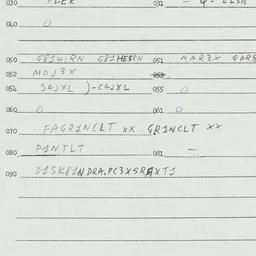 030 031
040 O
050 G81HIRN G81HESRN 051 MAR3X
052 MOJ3X 053
054 SAJXL )-CAJXL 055 O
060 O 061 O
070 FAGR1NCLT XX GR1NCLT XX
080 P1NTLT 081 —
090 D1SK81NDRA.PC3XSRAXT1